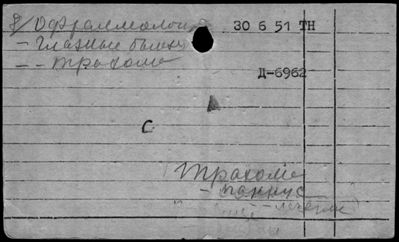 8/ Офтальмолог 30 6 51 ТН
- Глазные болезн
- - трахома
Д-6962
С
Трахома
- паннус
- лечение)